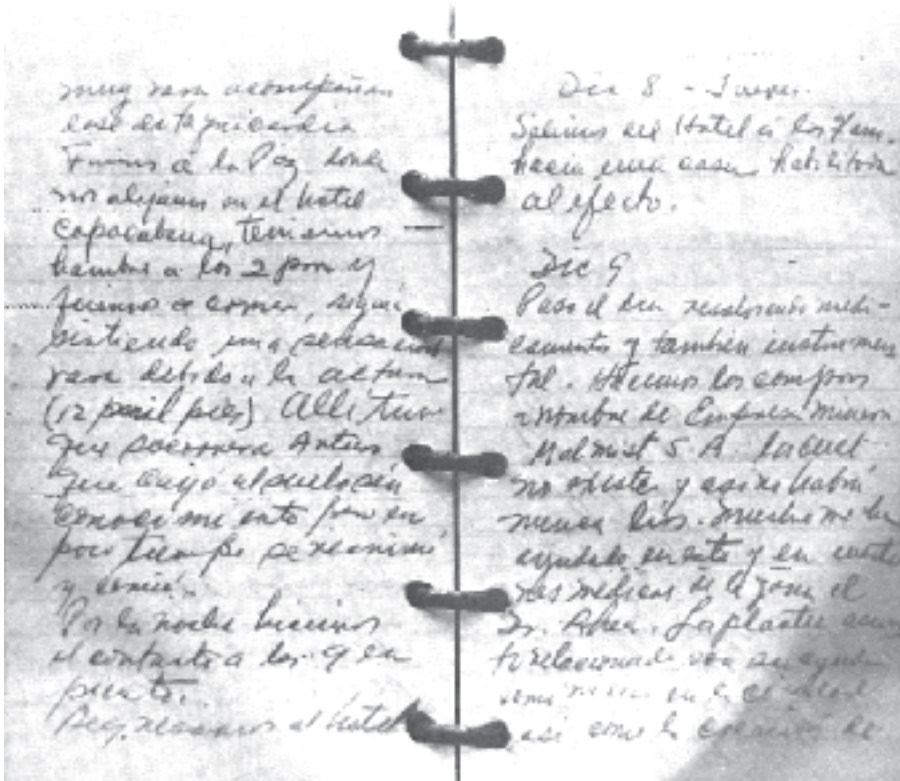 muy rara acompañan
dose de taquicardia
Fuimos a la Paz donde
nos alojamos en el hotel
Copacabana, teníamos
hambre a las 2 pm y
fuimos a comer, seguí
sintiendo una sensación
rara debido a la altura
(12 mil pies) Allí tuve
que socorrer a Arturo
que cayó al suelo sin
conocimiento pero en
poco tiempo se reanimó
y comió.
Por la noche hicimos
el contacto a las 9 en
punto.
Regresamos al hotel
Dic 8 - Jueves.
Salimos del Hotel a las 7 am.
hacia una casa habilitada
al efecto.
Dic 9
Paso el día medi-
camentos y también instrumen
tal. Hacemos las compras
a nombre de Empresa Minera
S. A. la cual
no existe y así no habrá
nunca líos. Mucho me ha
ayudado en esto y en
médicas de la zona el
Dr.
relacionado con su ayuda
en la ciudad
así como la de